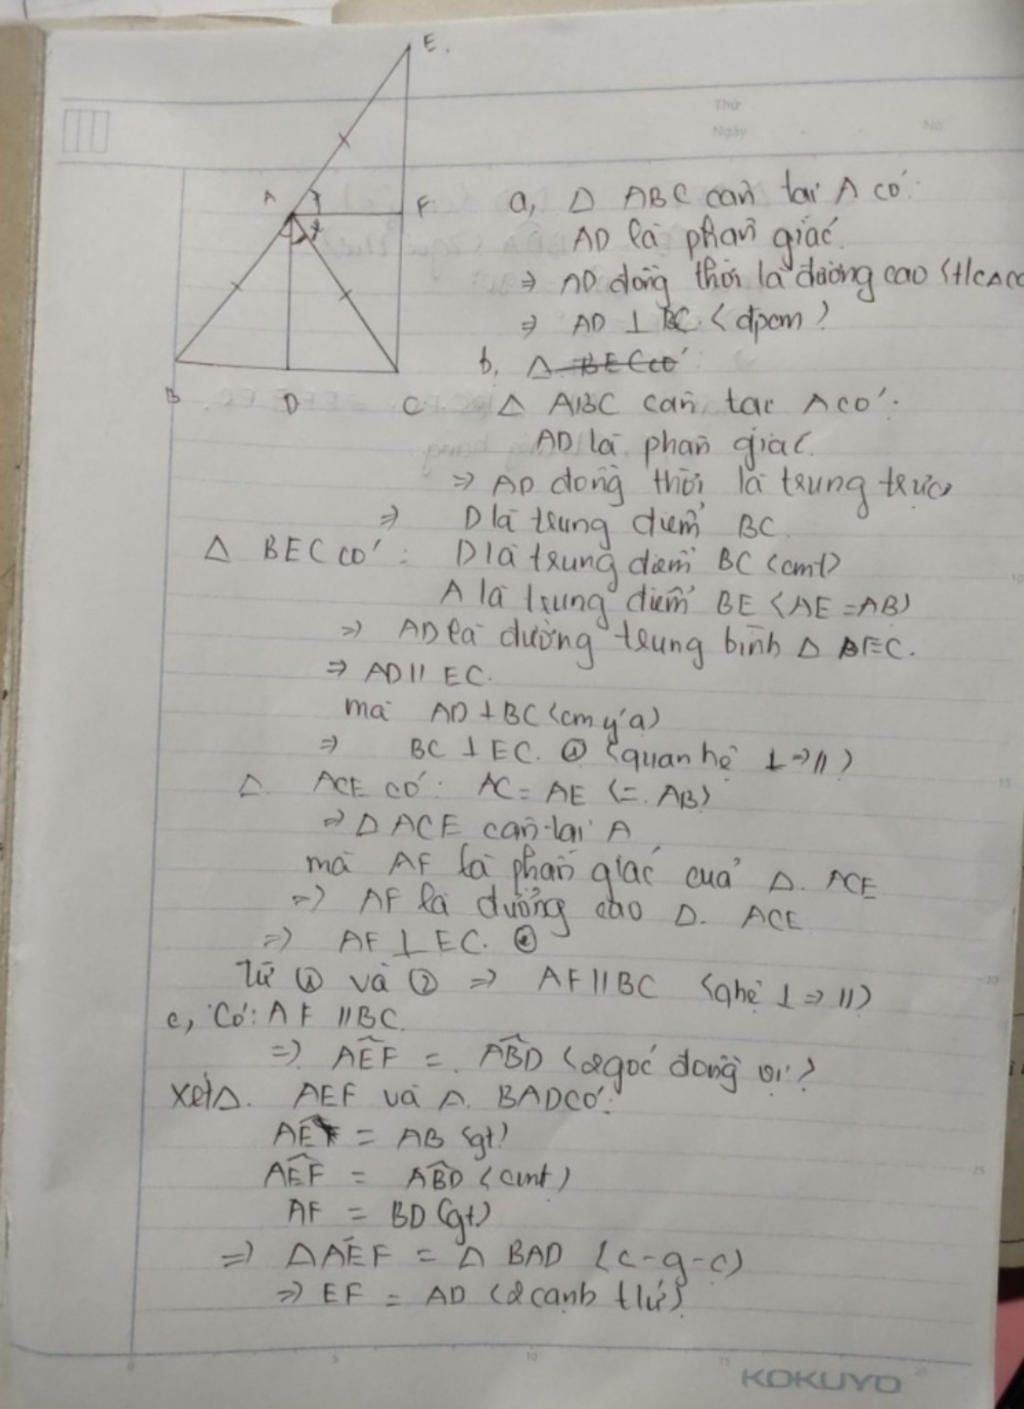 E.
Thứ
Ngày
No
A
F
a, Δ ABC cân tại A có:
AD là phân giác
⇒ AD đồng thời là đường cao (t/c Δ cc
⇒ AD ⊥ BC (đpcm)
b, Δ BEC có
B D C Δ ABC cân tại A có:
AD là phân giác
⇒ AD đồng thời là trung trực
⇒ D là trung điểm BC.
Δ BEC có: D là trung điểm BC (cmt)
A là trung điểm BE (AE = AB)
⇒ AD là đường trung bình Δ BEC.
⇒ AD // EC.
mà AD ⊥ BC (cm ý a)
⇒ BC ⊥ EC. ① (quan hệ ⊥ → //)
Δ ACE có: AC = AE (= AB)
⇒ Δ ACE cân tại A
mà AF là phân giác của Δ ACE
⇒ AF là đường cao Δ ACE
⇒ AF ⊥ EC. ②
Từ ① và ② ⇒ AF // BC (qhệ ⊥ ⇒ //)
c, Có: AF // BC.
⇒ AÊF = AB̂D (2 góc đồng vị)
Xét Δ AEF và Δ BAD có:
AE = AB (gt)
AÊF = AB̂D (cmt)
AF = BD (gt)
⇒ Δ AEF = Δ BAD (c-g-c)
⇒ EF = AD (2 cạnh t/ứ)
KOKUYO